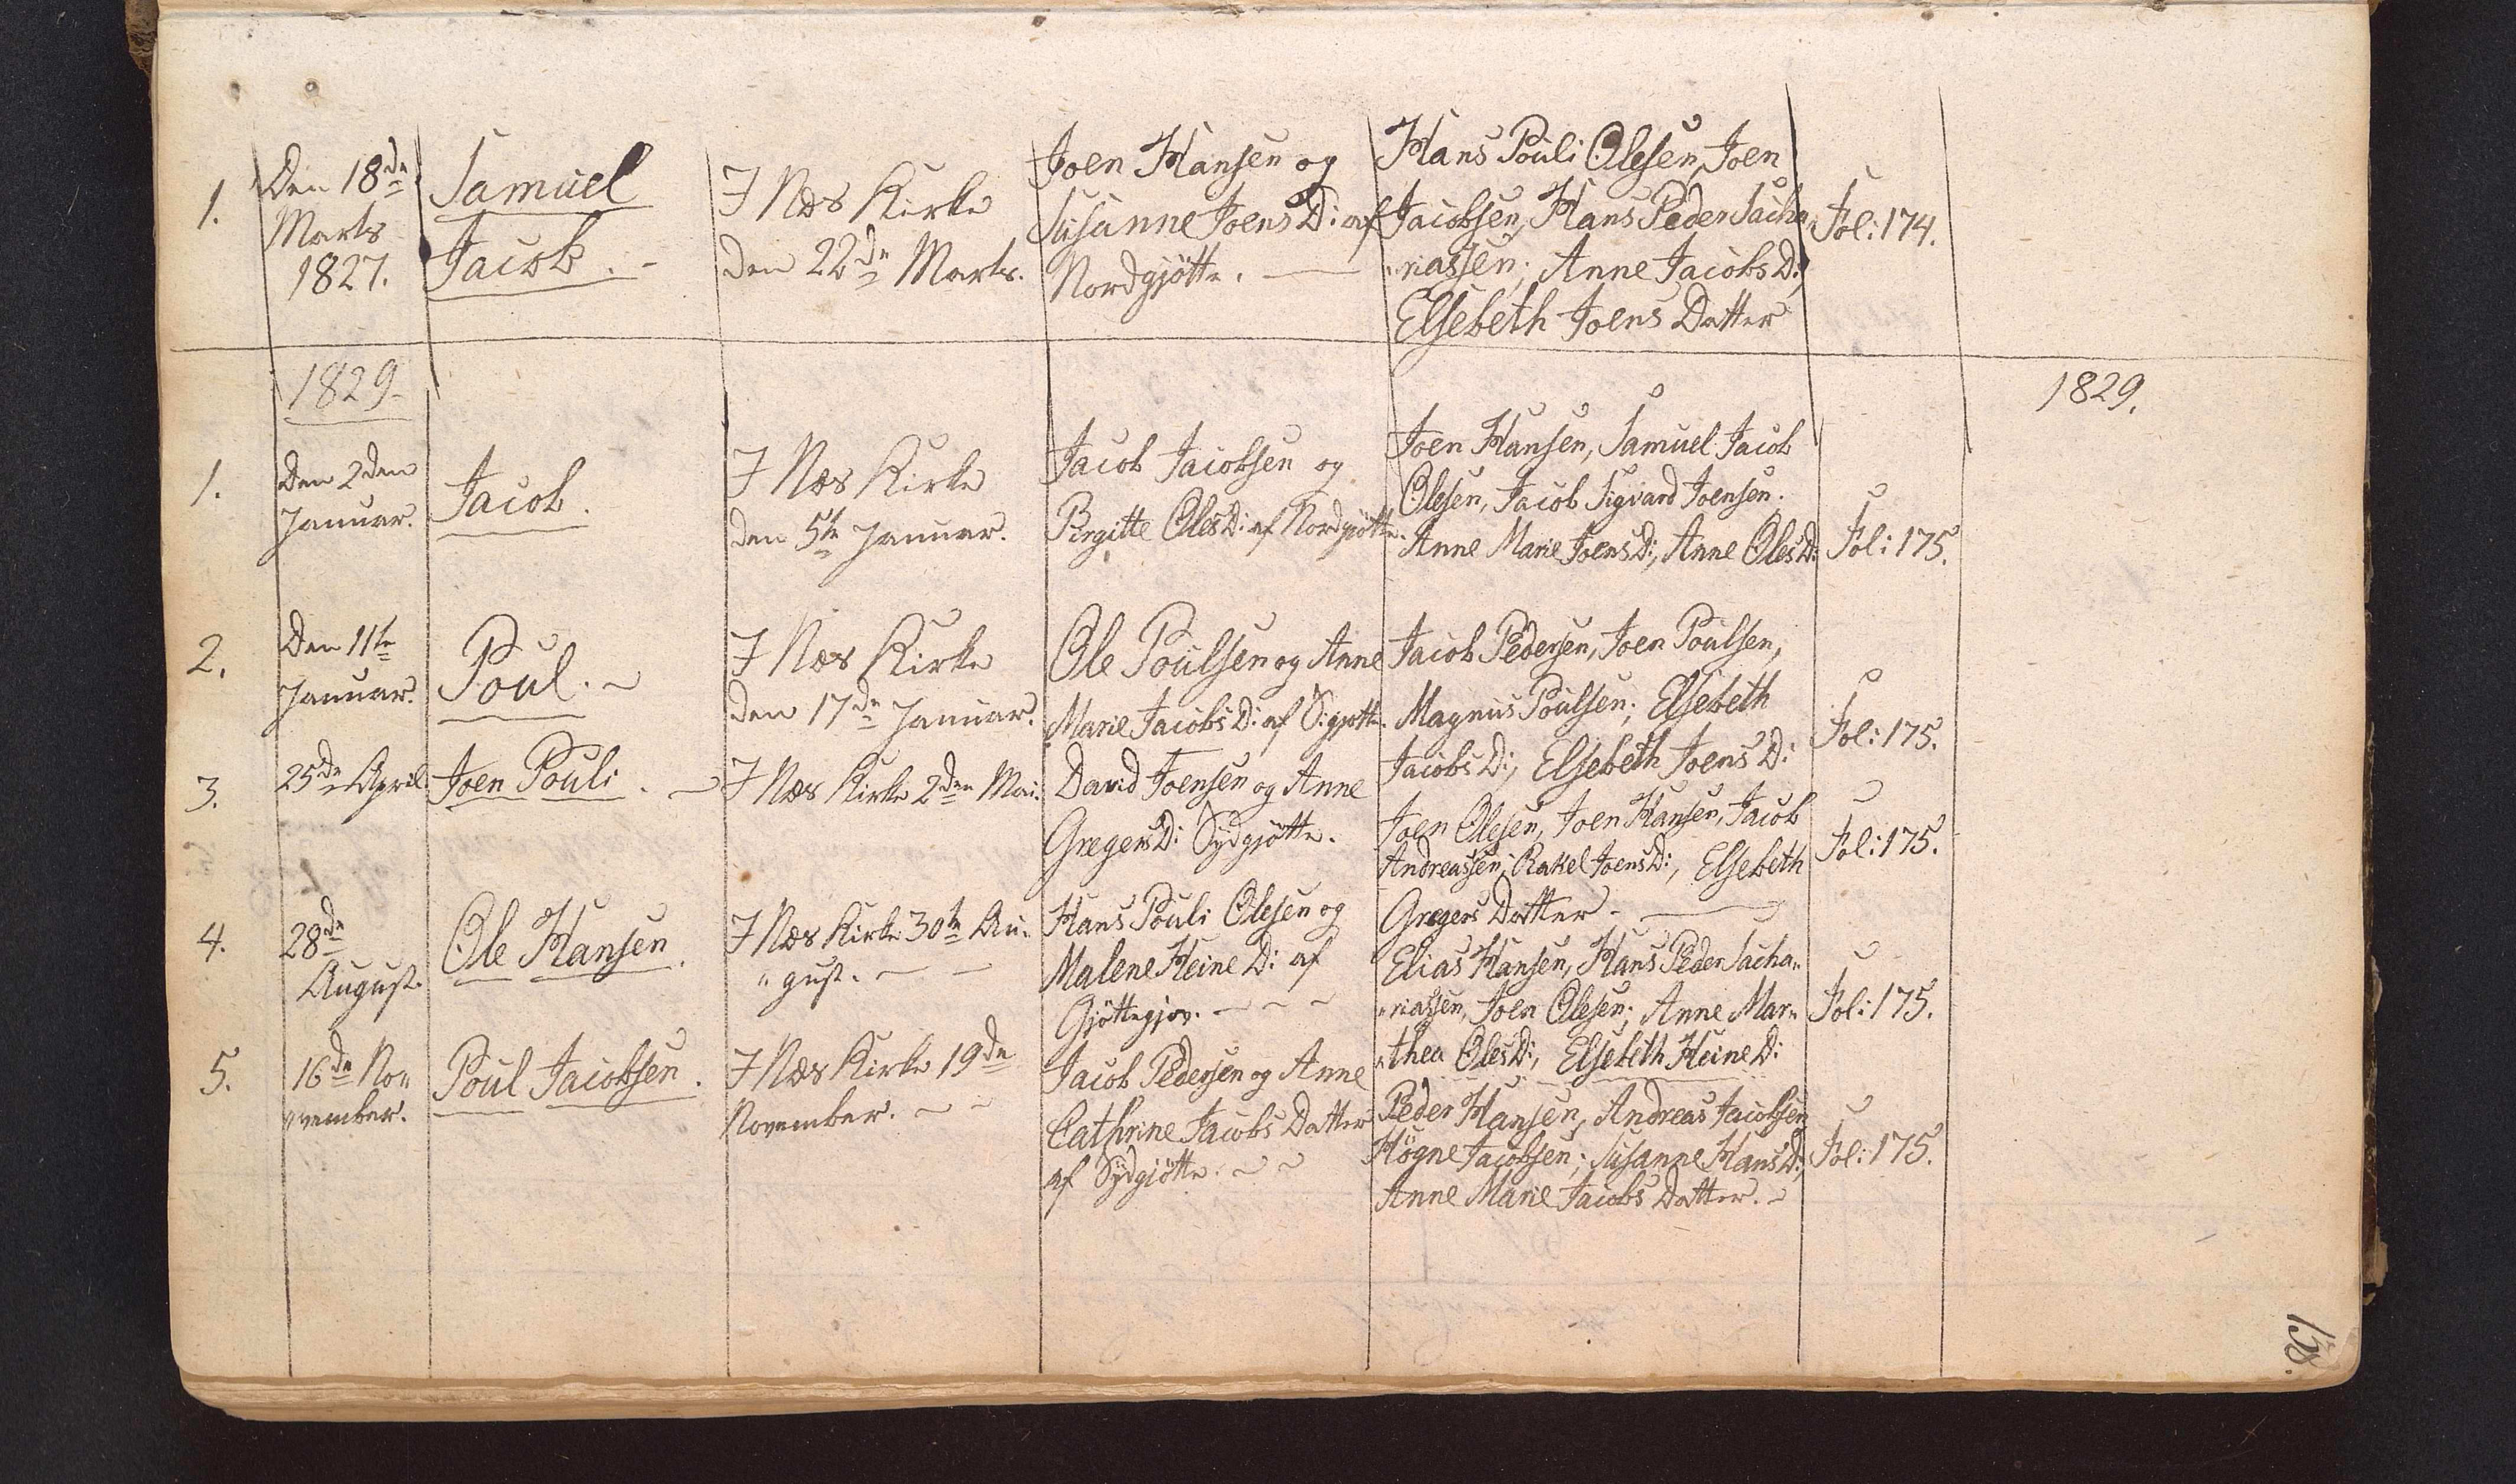 1.
Den 18de
Marts
1827.
Samuel
Jacob.
I Næs Kirke
den 22de Marts.
Joen Hansen og
Susanne Joens D: af
Nordgjötte.
Hans Pouli Olesen, Joen
Jacobsen, Hans Peder Sacha„
„riassen; Anne Jacobs D:,
Elsebeth Joens Datter
Fol: 174.
1829.
1829.
1.
Den 2den
Januar.
Jacob.
I Næs Kirke
den 5te Januar.
Jacob Jacobsen og
Birgitte Oles D: af Nordgjötte.
Joen Hansen, Samuel Jacob
Olesen, Jacob Sigvard Joensen.
Anne Marie Joens D:, Anne Oles D:
Fol: 175.
2.
Den 11te
Januar.
Poul.
I Næs Kirke
den 17de Januar.
Ole Poulsen og Anne
Marie Jacobs D: af S:gjøtte.
Jacob Pedersen, Joen Poulsen,
Magnus Poulsen; Elsebeth
Jacobs D:, Elsebeth Joens D:
Fol: 175.
3.
25de April
Joen Pouli.
I Næs Kirke 2den Mai.
David Joensen og Anne
Gregers D: Sydgjötte.
Joen Olesen, Joen Hansen, Jacob
Andreassen; Rakel Joens D:, Elsebeth
Gregers Datter
Fol: 175.
4.
28de
August.
Ole Hansen.
I Næs Kirke 30te Au„
„gust.
Hans Pouli Olesen og
Malene Heine D: af
Gjöttegjov.
Elias Hansen, Hans Peder Sacha„
„riassen, Joen Olesen; Anne Mar„
„thea Oles D:, Elsebeth Heine D:
Fol: 175.
5.
16de No„
„vember.
Poul Jacobsen.
I Næs Kirke 19de
November.
Jacob Pedersen og Anne
Cathrine Jacobs Datter
af Sydgjötte.
Peder Hansen, Andreas Jacobsen
Högne Jacobsen; Susanne Hans D:,
Anne Marie Jacobs Datter.
Fol: 175.